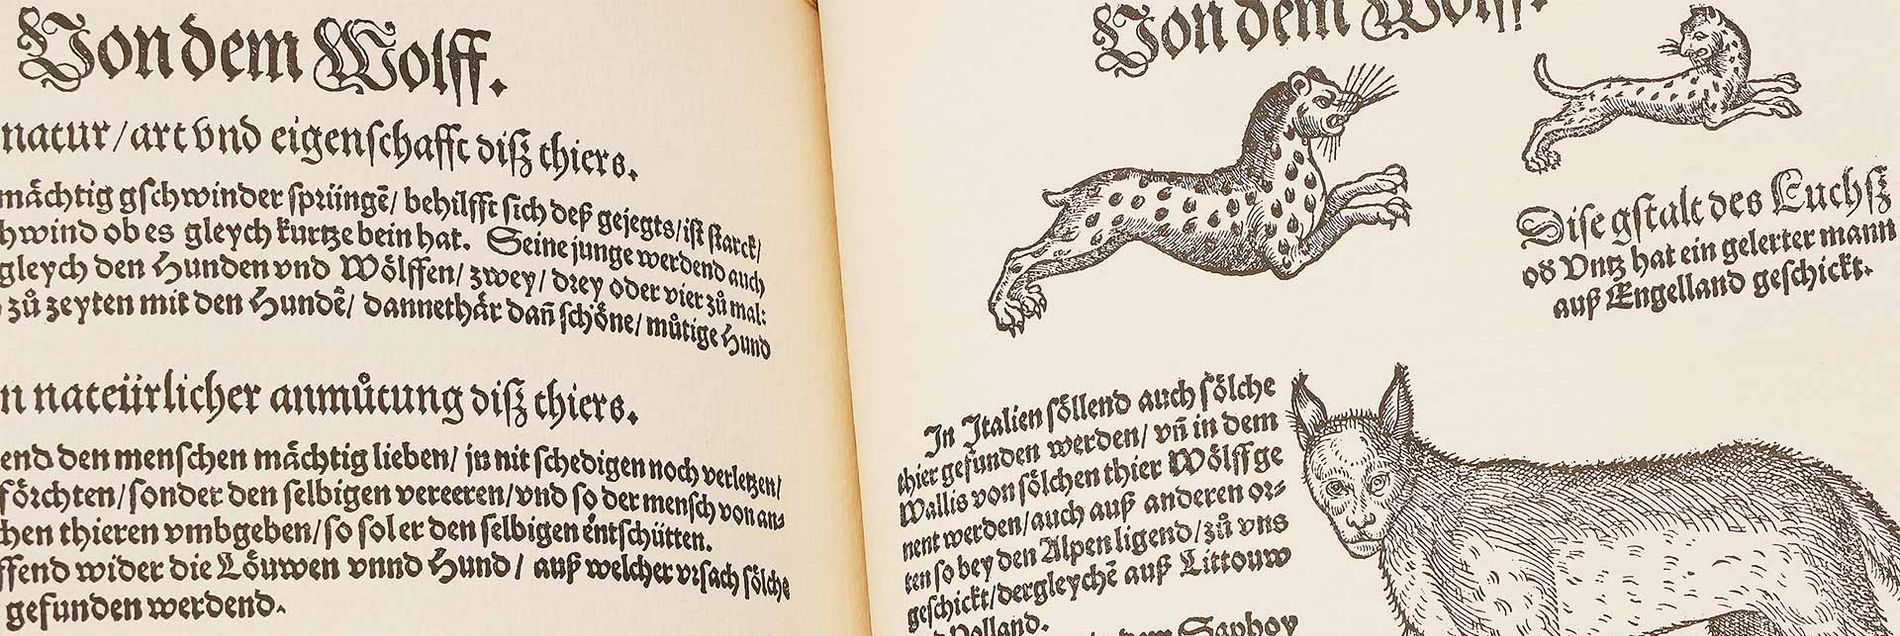 Von dem Wolff.
natur/art vnd eigenschafft diß thiers.
mächtig gschwinder sprüngē/ behilfft sich deß gejegts/ist starck/
hwind ob es gleych kurtze bein hat. Seine junge werdend auch
gleych den Hunden vnd Wölffen/ zwey/ drey oder vier zů mal:
zů zeyten mit den Hundē/ dannethär dañ schöne/ můtige Hund
n nateürlicher anmůtung diß thiers.
end den menschen mächtig lieben/ jn nit schedigen noch verletzen/
förchten/sonder den selbigen vereeren/vnd so der mensch von an⸗
chen thieren vmbgeben/so sol er den selbigen entschütten.
ffend wider die Löuwen vnnd Hund/ auß welcher vrsach sölche
gefunden werdend.
Von dem Wolff.
Dise gstalt des Luchß
oď Vntz hat ein gelerter mann
auß Engelland geschickt.
In Italien söllend auch sölche
thier gefunden werden/ vñ in dem
Wallis von sölchen thier Wölff ge
nent werden/auch auß anderen or⸗
ten so bey den Alpen ligend/zů vns
geschickt/dergleychē auß Littouw
Polland.
dem Saphoy